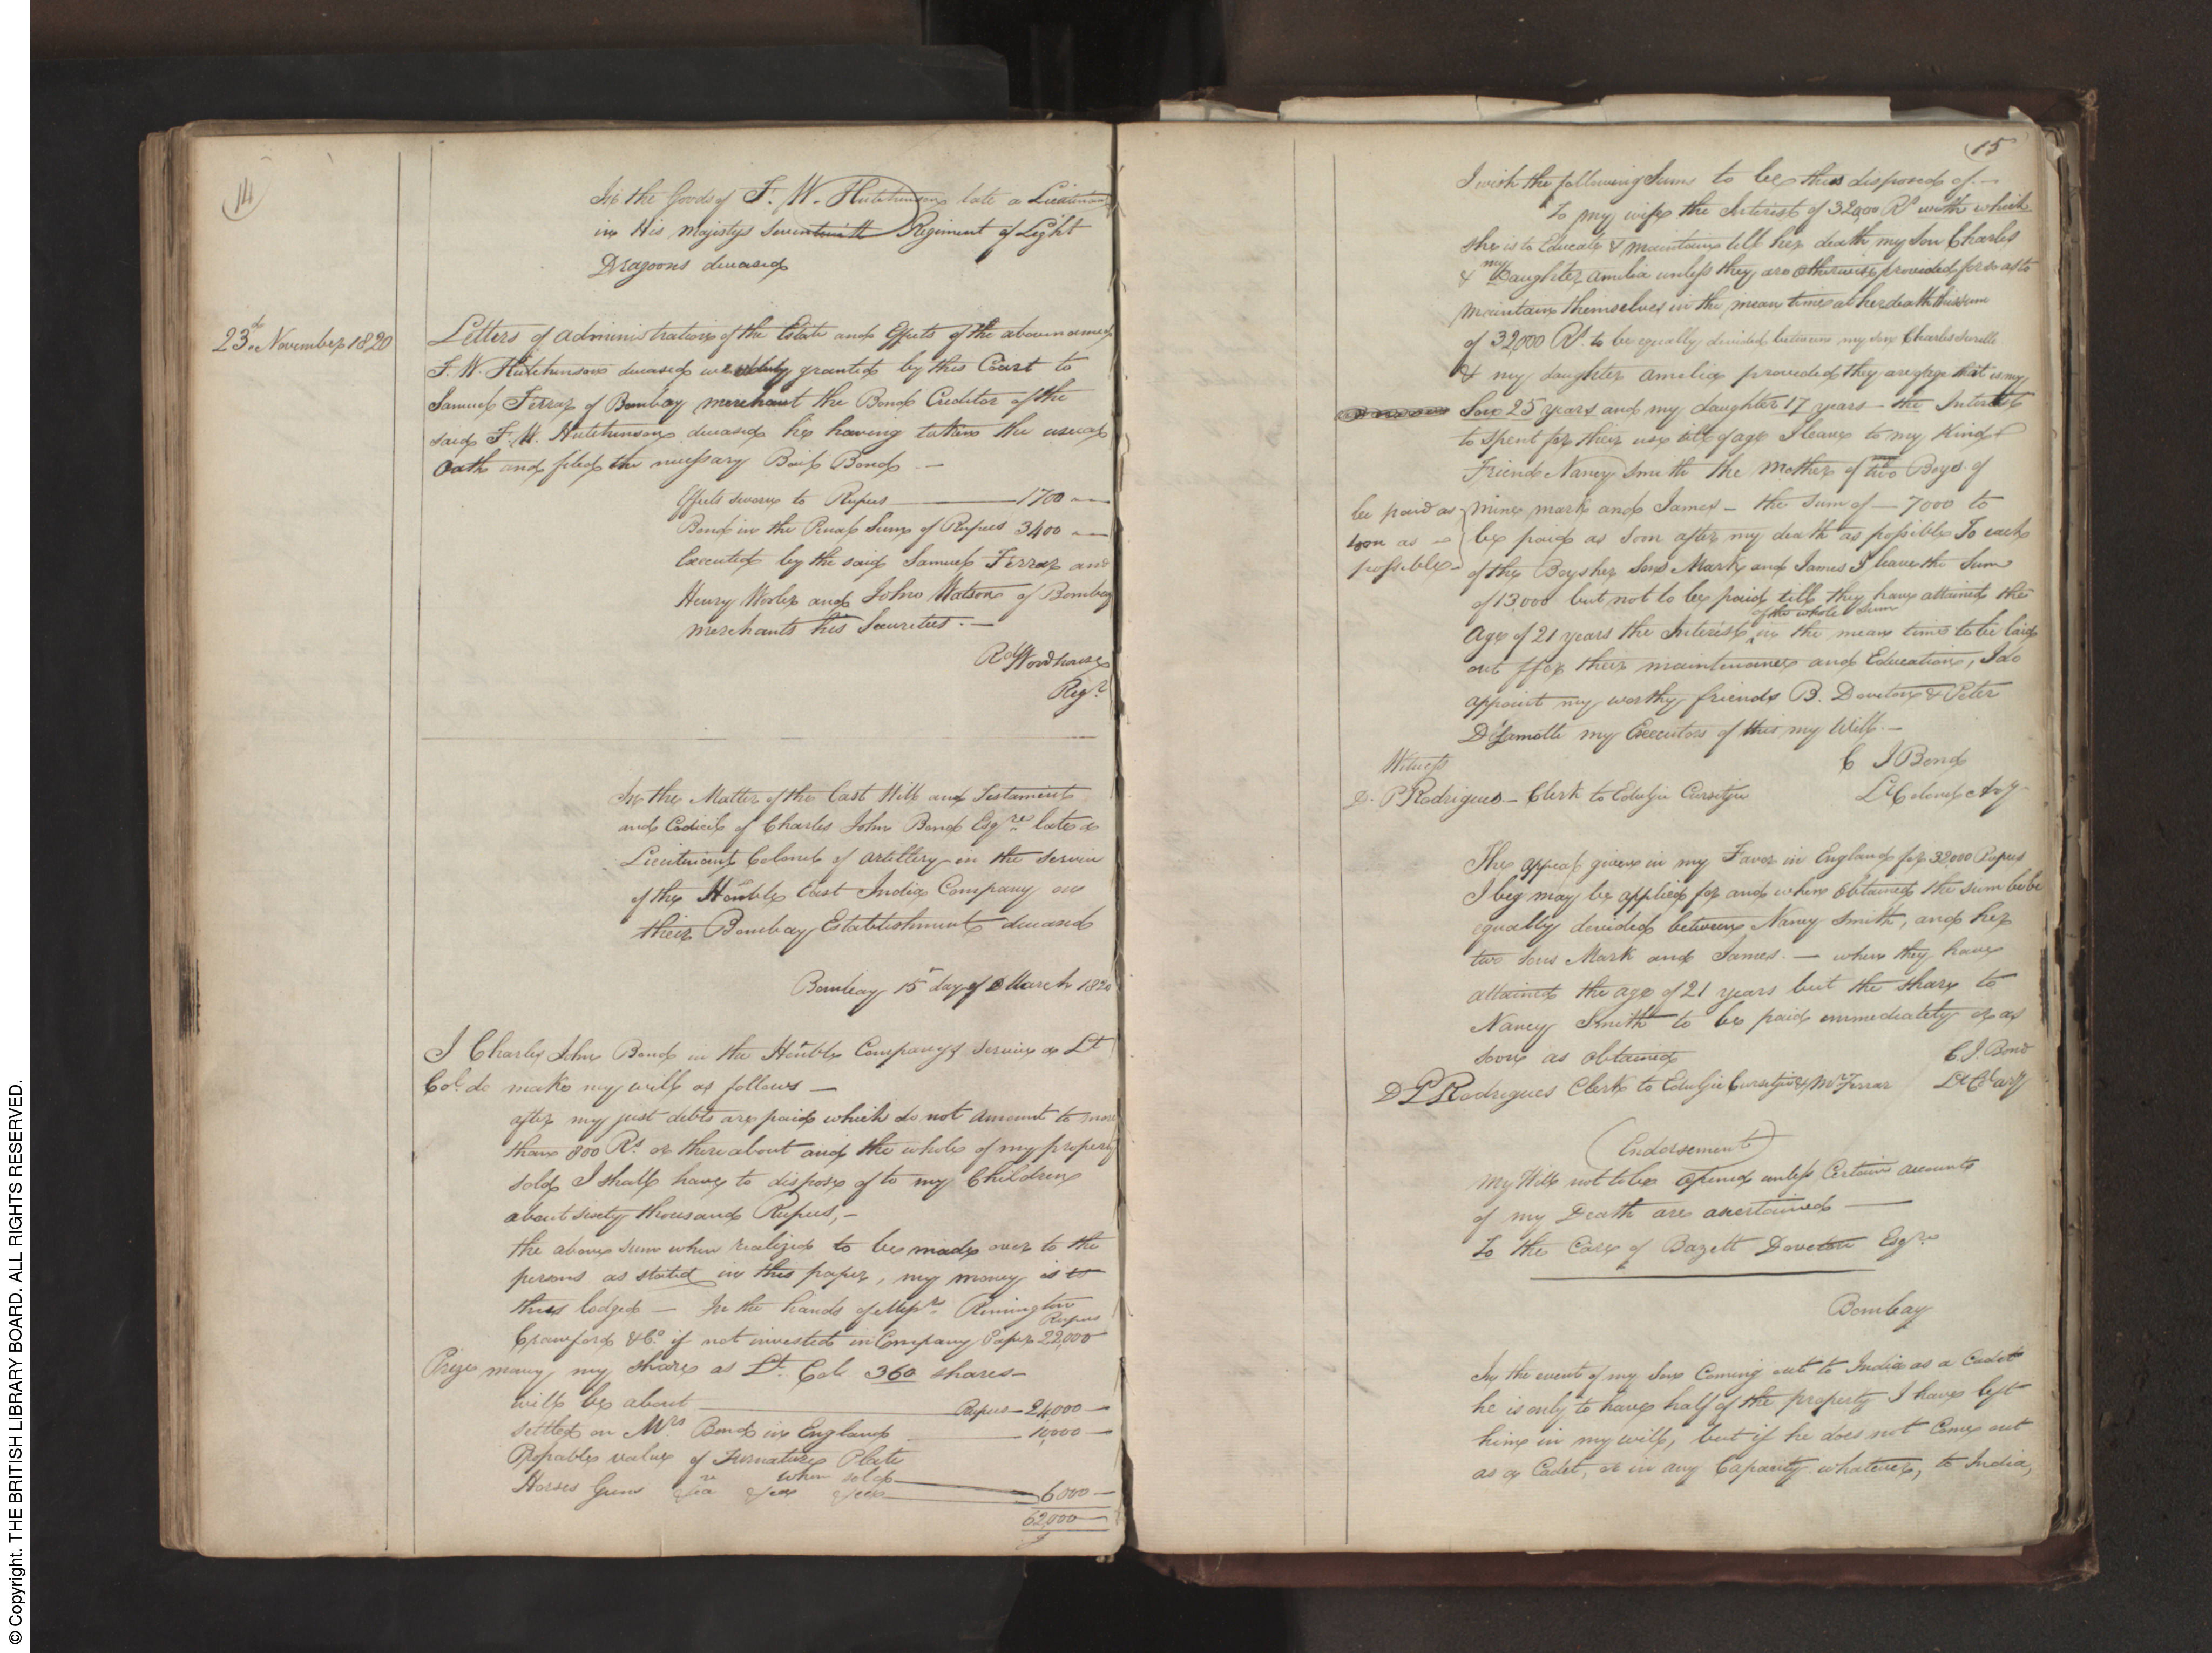 14
In the Goods of F. W. Hutchinson late a Lieutenant
in His Majestys Seventeenth Regiment of Light
Dragoons deceased
23d. November 1820
Letters of administration of the Estate and Effects of the abovenamed
F. W. Hutchinson deceased were duly granted by this Court to
Samuel Ferrar of Bombay merchant the Bond Creditor of the
said F. W. Hutchinson deceased he having taken the usual
Oath and filed the necessary Bail Bond —
Effects sworn to Rupees — 1700 —
Bond in the Penal Sum of Rupees 3400 —
Executed by the said Samuel Ferrar and
Henry and John Watson of Bombay
merchants his Securities. —
Rd Woodhouse
Regr.
In the Matter of the Last Will and Testament
and Codicil of Charles John Bond Esqre. late a
Lieutenant Colonel of artillery in the Service
of the Honble East India Company on
their Bombay Establishment deceased
Bombay 15 day of March 1820
I Charles John Bond in the Honble Companys Service a Lt
Col. do make my will as follows —
after my just debts are paid which do not amount to more
than 800 Rs. or there about and the whole of my property
sold I shall have to dispose of to my Children
about sixty thousand Rupees, —
the above sum when realized to be made over to the
persons as stated in this paper, my money is to
thus lodged — In the hands of Messrs. Rimington
Rupees
Crawford & Co. if not invested in Company Paper 22,000
Prize money my share as Lt. Col. 360 shares —
will be about — Rupees — 24,000 —
settled on Mrs Bond in England — 10,000 —
Propable value of Furnature Plate
Horses Guns &ca &ca &ca when sold — 6000 —
62,000
15
I wish the following Sums to be thus disposed of. —
To my wife the Interest of 32,000 Rs with which
she is to Educate & maintain till her death my Son Charles
& my Daughter Amelia unless they are otherwise provided for so as to
maintain themselves in the mean time at her death this sum
of 32,000 Rs. to be equally divided between my son Charles
& my daughter Amelia provided they are of age that is my
Son 25 years and my daughter 17 years — the Interest
to Spent for their use till of age I leave to my Kind
Friend Nancy Smith the Mother of two Boys of
mine, mark and James — the Sum of — 7000 to
be paid as soon after my death as possible To each
be paid as
soon as —
possible —
of the Boys her Sons Mark and James I leave the Sum
of 13,000 but not to be paid till they have attained the
of the whole sum
Age of 21 years the Interest in the mean time to be laid
out for their maintenance and Education, I do
appoint my worthy friends B. Doveton & Peter
D'Lamotte my Executors of this my Will. —
Witness
C J Bond
D. P Rodrigues — Clerk to Eduljee Cursetjee
Lt Colonel Arty
The appeal given in my Favor in England for 32000 Rupees
I beg may be applied for and when obtained the sum to be
equally devided between Nancy Smith, and her
two Sons Mark and James. — when they have
attained the age of 21 years but the share to
Nancy Smith to be paid immediately or as
soon as obtained
C. J. Bond
D P Rodrigues Clerk to Eduljee Cursetjee & Mr Ferrar
Lt Cl arty
(Endorsement)
My Will not to be opened unless Certain accounts
of my Death are ascertained —
To the Care of Bazett Doveton Esqre
Bombay
In the event of my Son Coming out to India as a Cadet
he is only to have half of the property I have left
him in my will, but if he does not Come out
as a Cadet, or in any Capacity whatever, to India,
© Copyright. THE BRITISH LIBRARY BOARD. ALL RIGHTS RESERVED.